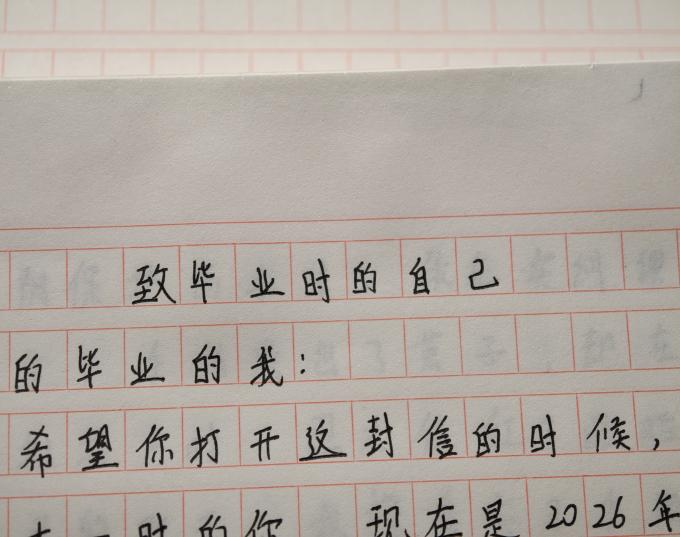 致毕业时的自己
的毕业的我：
希望你打开这封信的时候，
一时的你 现在是2026年